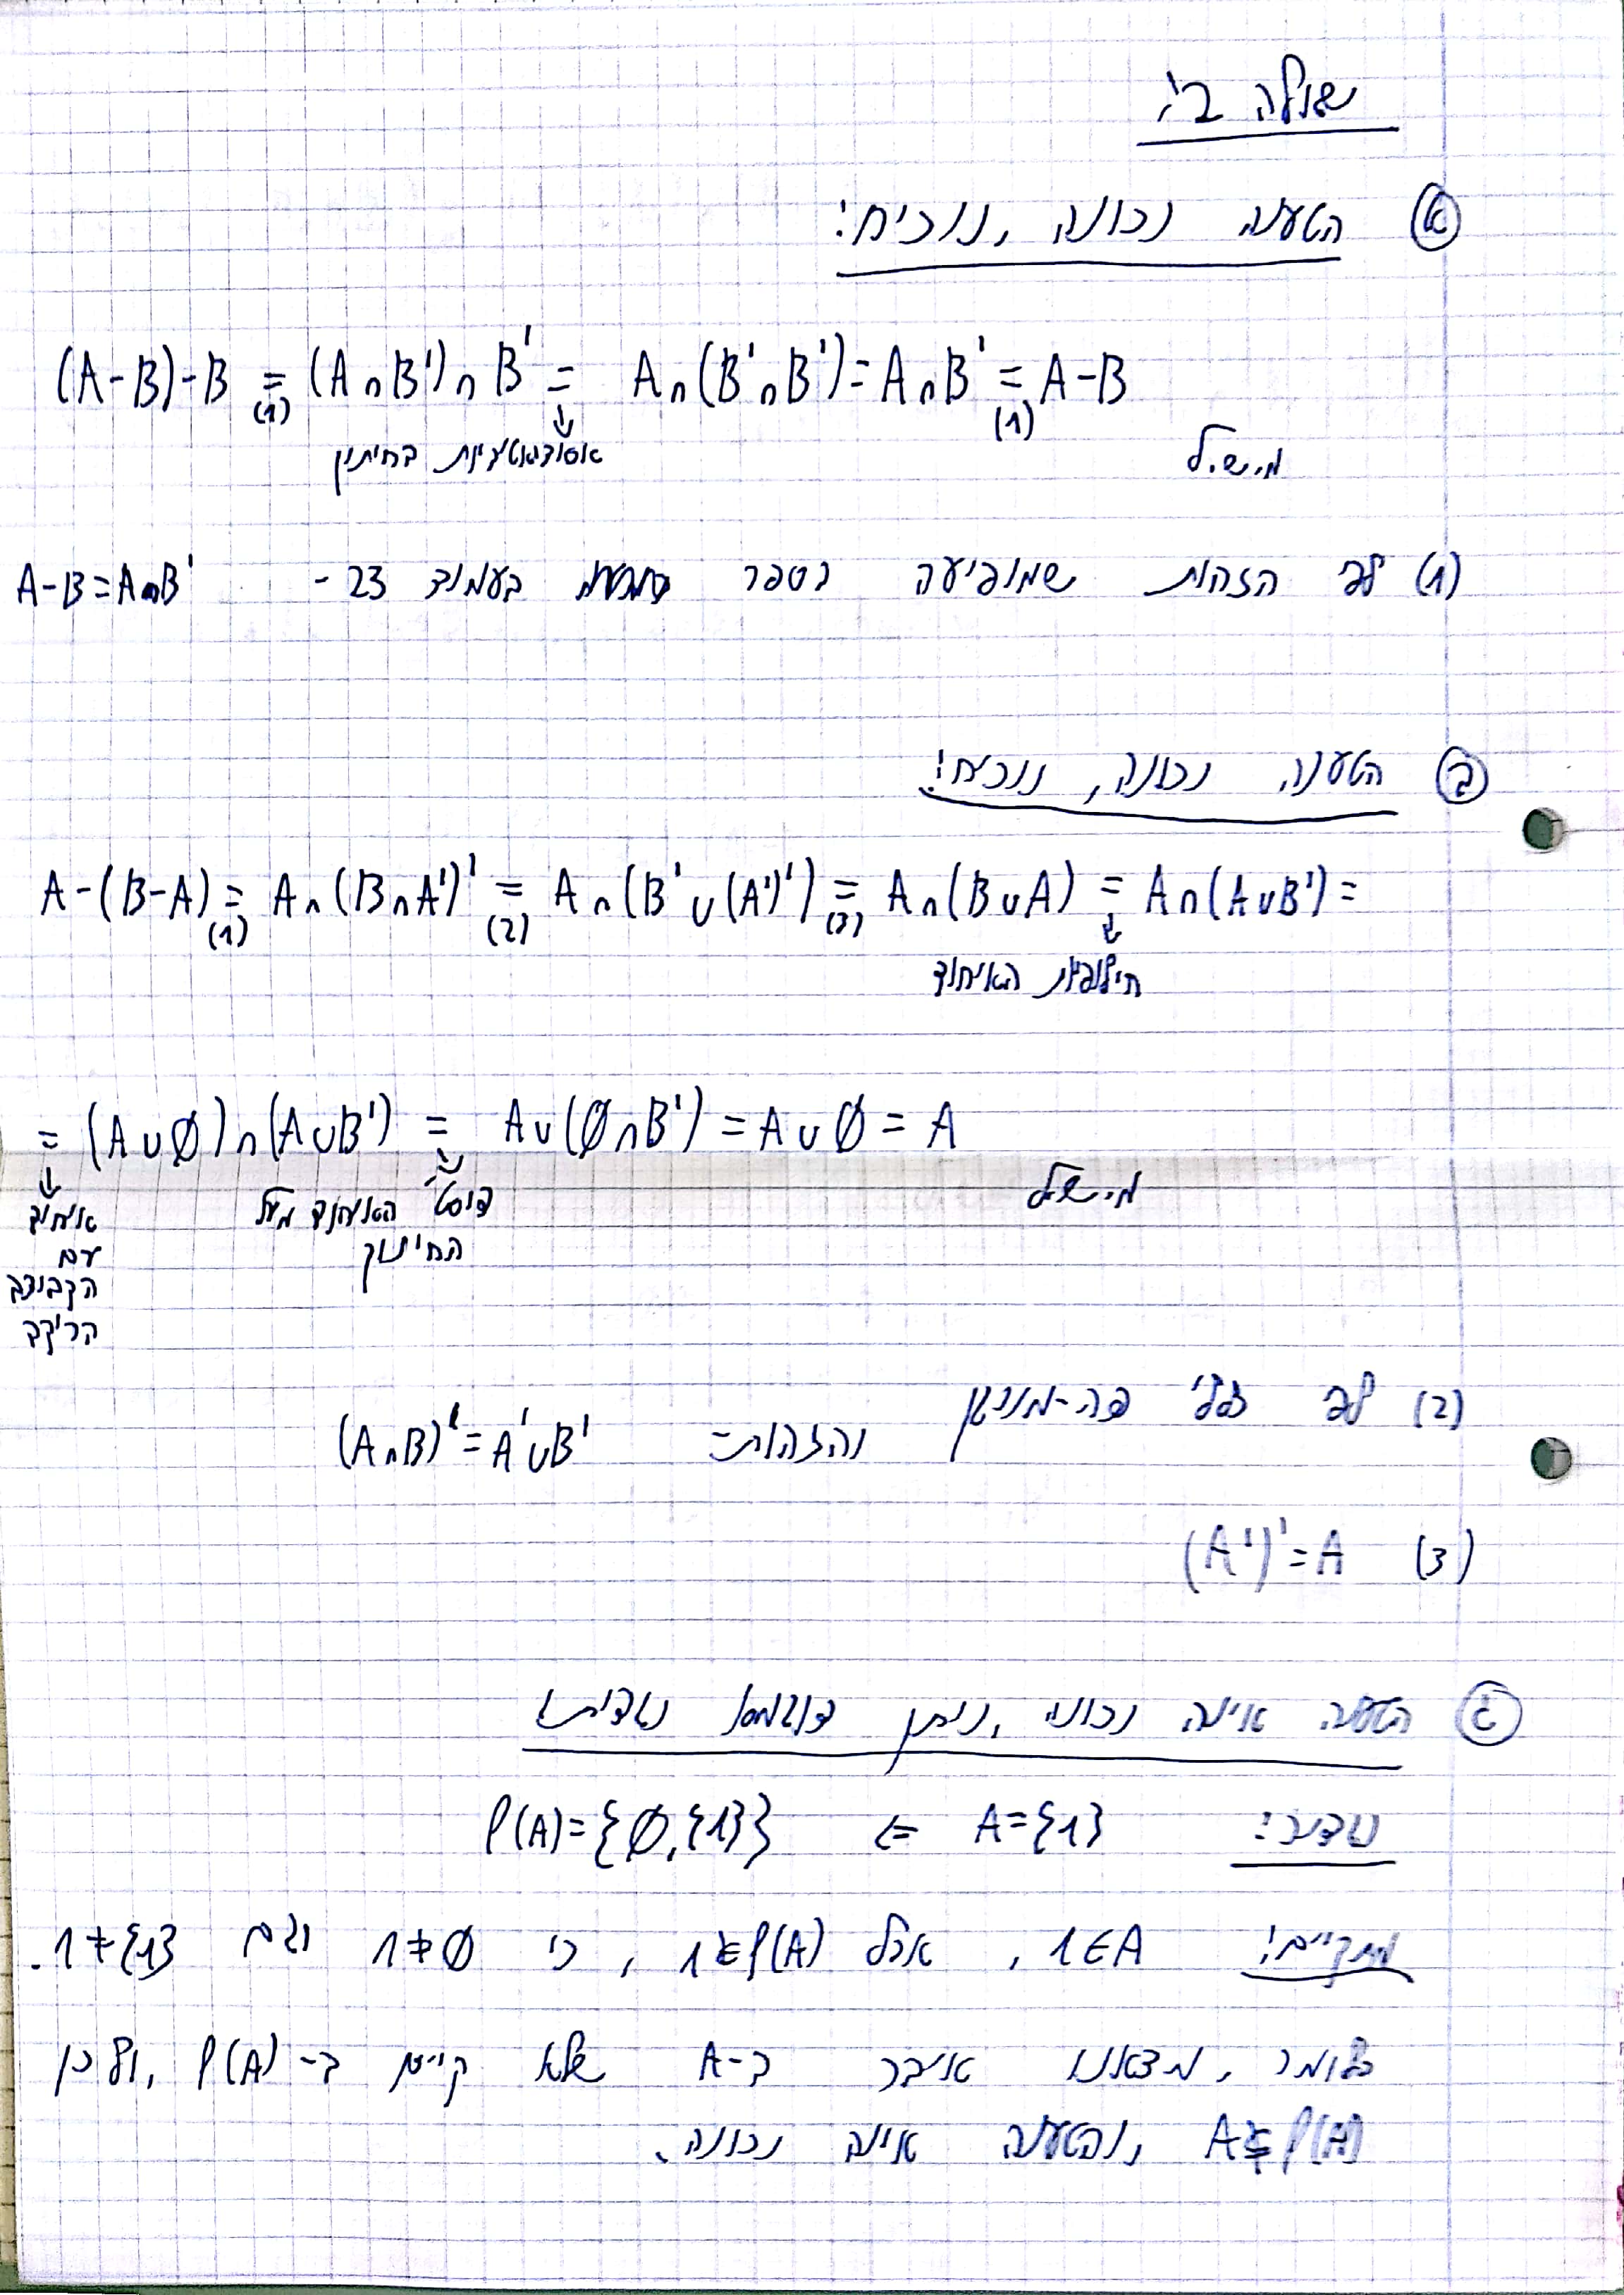 שאלה 2:
א הטענה נכונה, נוכיח:
(A-B)-B = (A∩B')∩B' = A∩(B'∩B') = A∩B' = A-B
(1) ↓ (1)
אסוציאטיביות בחיתוך מ.ש.ל
(1) לפי הזהות שמופיעה בספר בעמוד 23 - A-B=A∩B'
ב הטענה נכונה, נוכיח:
A-(B-A) = A∩(B∩A')' = A∩(B'∪(A')') = A∩(B∪A) = A∩(A∪B') =
(1) (2) (3) ↓
חילופיות האיחוד
= (A∪∅)∩(A∪B') = A∪(∅∩B') = A∪∅ = A
↓ איחוד עם הקבוצה הריקה
פילוג האיחוד מעל
החיתוך
מ.ש.ל
(2) לפי כללי דה-מורגן והזהות- (A∩B)'=A'∪B'
(3) (A')'=A
ג הטענה אינה נכונה, ניתן דוגמא נגדית:
נגדיר: A={1} ⇐ P(A)={∅,{1}}
מתקיים: 1∈A, אבל 1∉P(A), כי 1≠∅ וגם 1≠{1}.
כלומר, מצאנו איבר ב-A שלא קיים ב-P(A), ולכן
A⊈P(A), והטענה אינה נכונה.